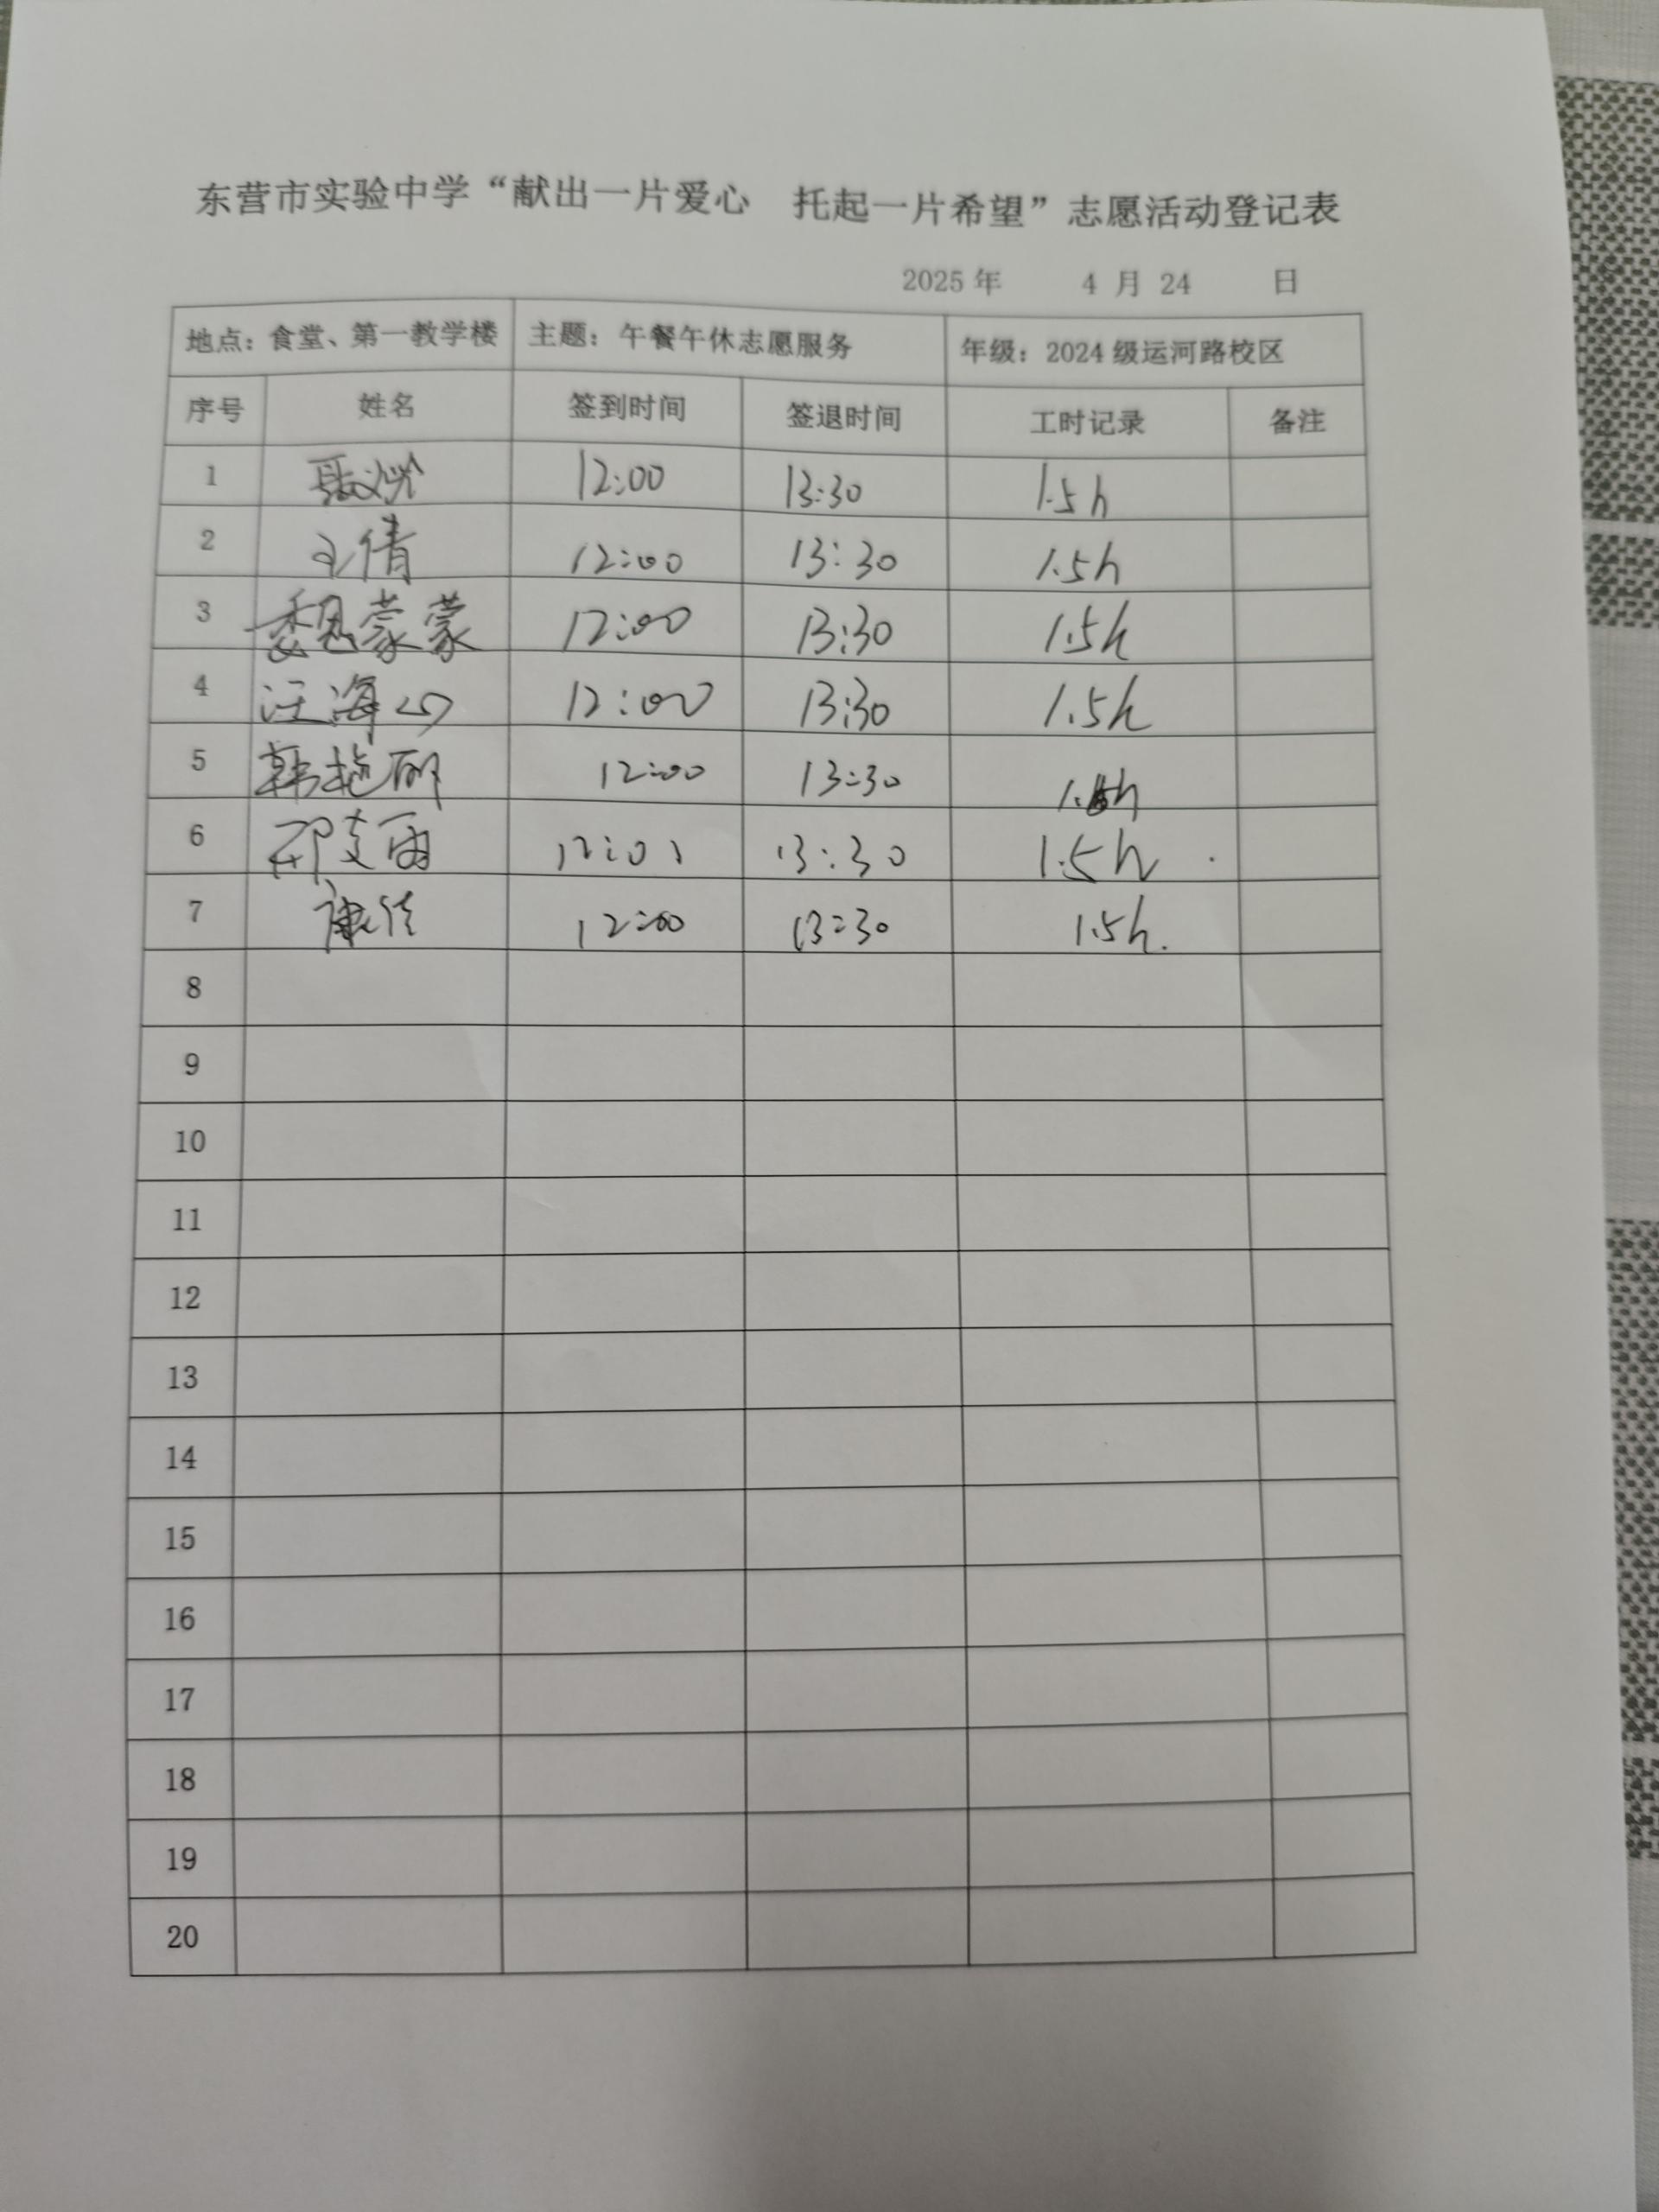 东营市实验中学“献出一片爱心 托起一片希望”志愿活动登记表
2025 年 4 月 24 日
地点：食堂、第一教学楼 主题：午餐午休志愿服务 年级：2024 级运河路校区
序号 姓名 签到时间 签退时间 工时记录 备注
1 12:00 13:30 1.5h
2 王倩 12:00 13:30 1.5h
3 魏蒙蒙 12:00 13:30 1.5h
4 汪海 12:00 13:30 1.5h
5 韩艳丽 12:00 13:30 1.5h
6 13:30 1.5h
7 康佳 12:00 13:30 1.5h.
8
9
10
11
12
13
14
15
16
17
18
19
20